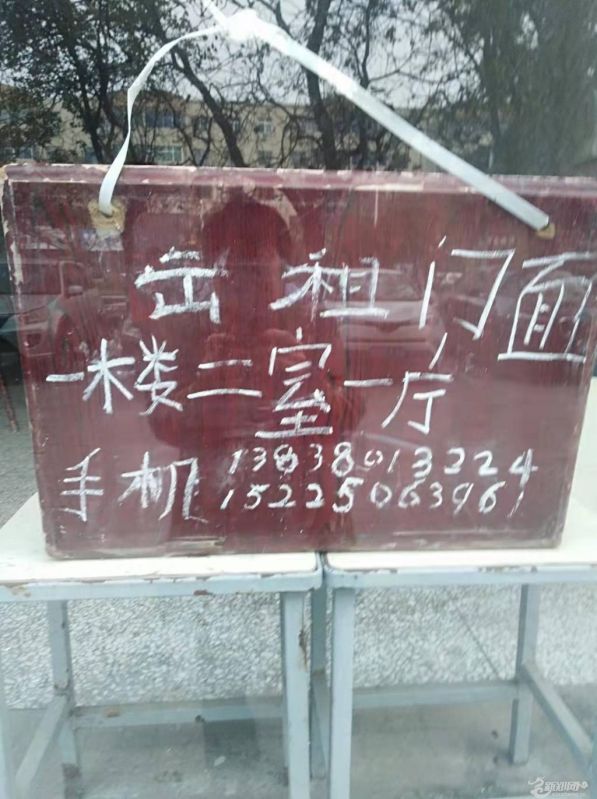 出租门面
一楼二室一厅
手机 13838013224
15225063961
新郑网